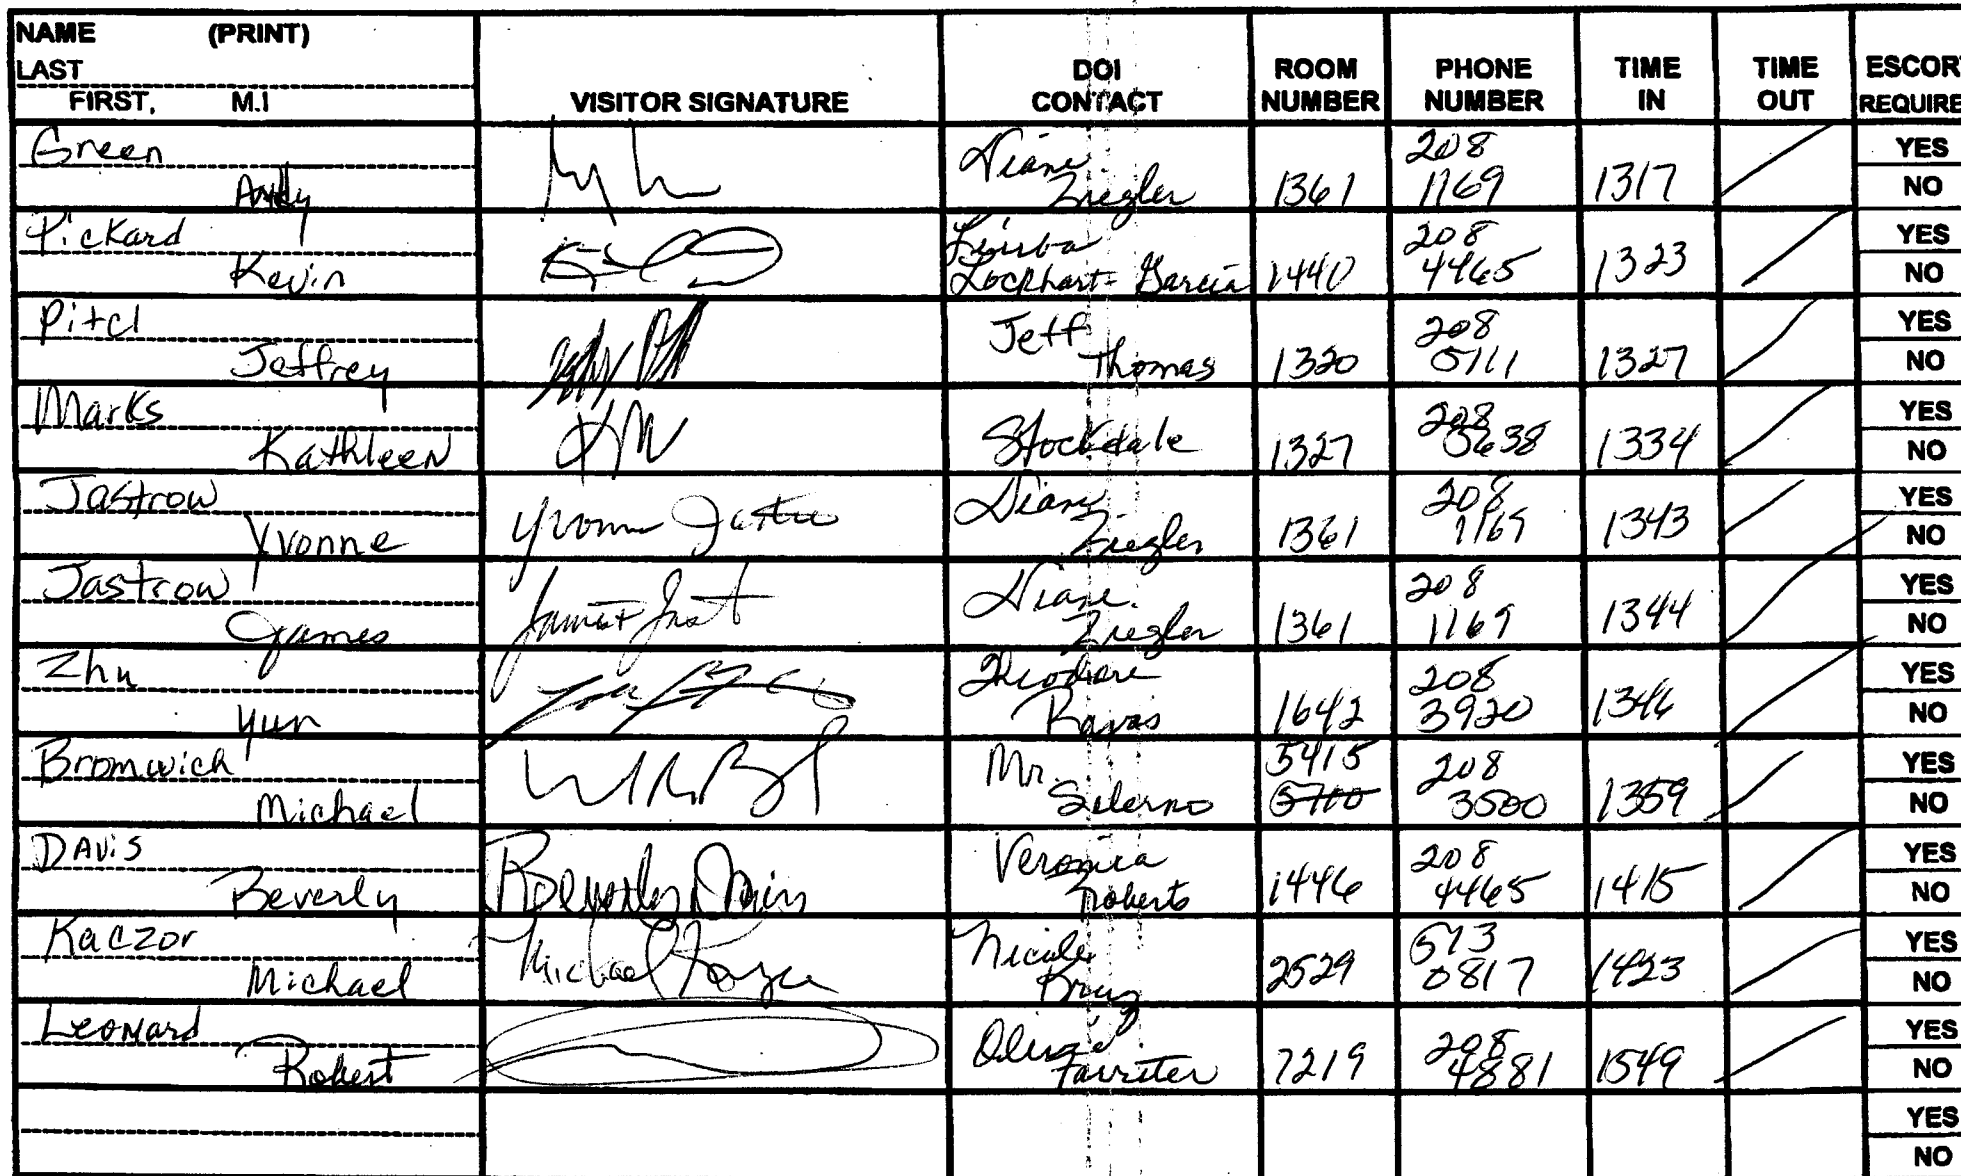 NAME (PRINT)
LAST
FIRST, M.I
VISITOR SIGNATURE
DOI
CONTACT
ROOM
NUMBER
PHONE
NUMBER
TIME
IN
TIME
OUT
ESCOR
REQUIRE
Green
Andy
Diane
Ziegler
1361
208
1169
1317
YES
NO
Pickard
Kevin
Lockhart-Garcia
1440
208
4465
1323
YES
NO
Pitcl
Jeffrey
Jeff
Thomas
1320
208
5111
1327
YES
NO
Marks
Kathleen
KM
Stockdale
1327
208
5638
1334
YES
NO
Jastrow
Yvonne
Yvonne Jastro
Diane
Ziegler
1361
208
1169
1343
YES
NO
Jastrow
James
Diane
Ziegler
1361
208
1169
1344
YES
NO
Zhu
Yun
Theodore
Ravas
1642
208
3920
1346
YES
NO
Bromwich
Michael
Mr.
Salerno
5415
5700
208
3500
1359
YES
NO
Davis
Beverly
Beverly Davis
Veronica
Roberts
1446
208
4465
1415
YES
NO
Kaczor
Michael
Michael
Nicole
2529
513
0817
1423
YES
NO
Leonard
Robert
Ferriter
7219
208
4881
1549
YES
NO
YES
NO